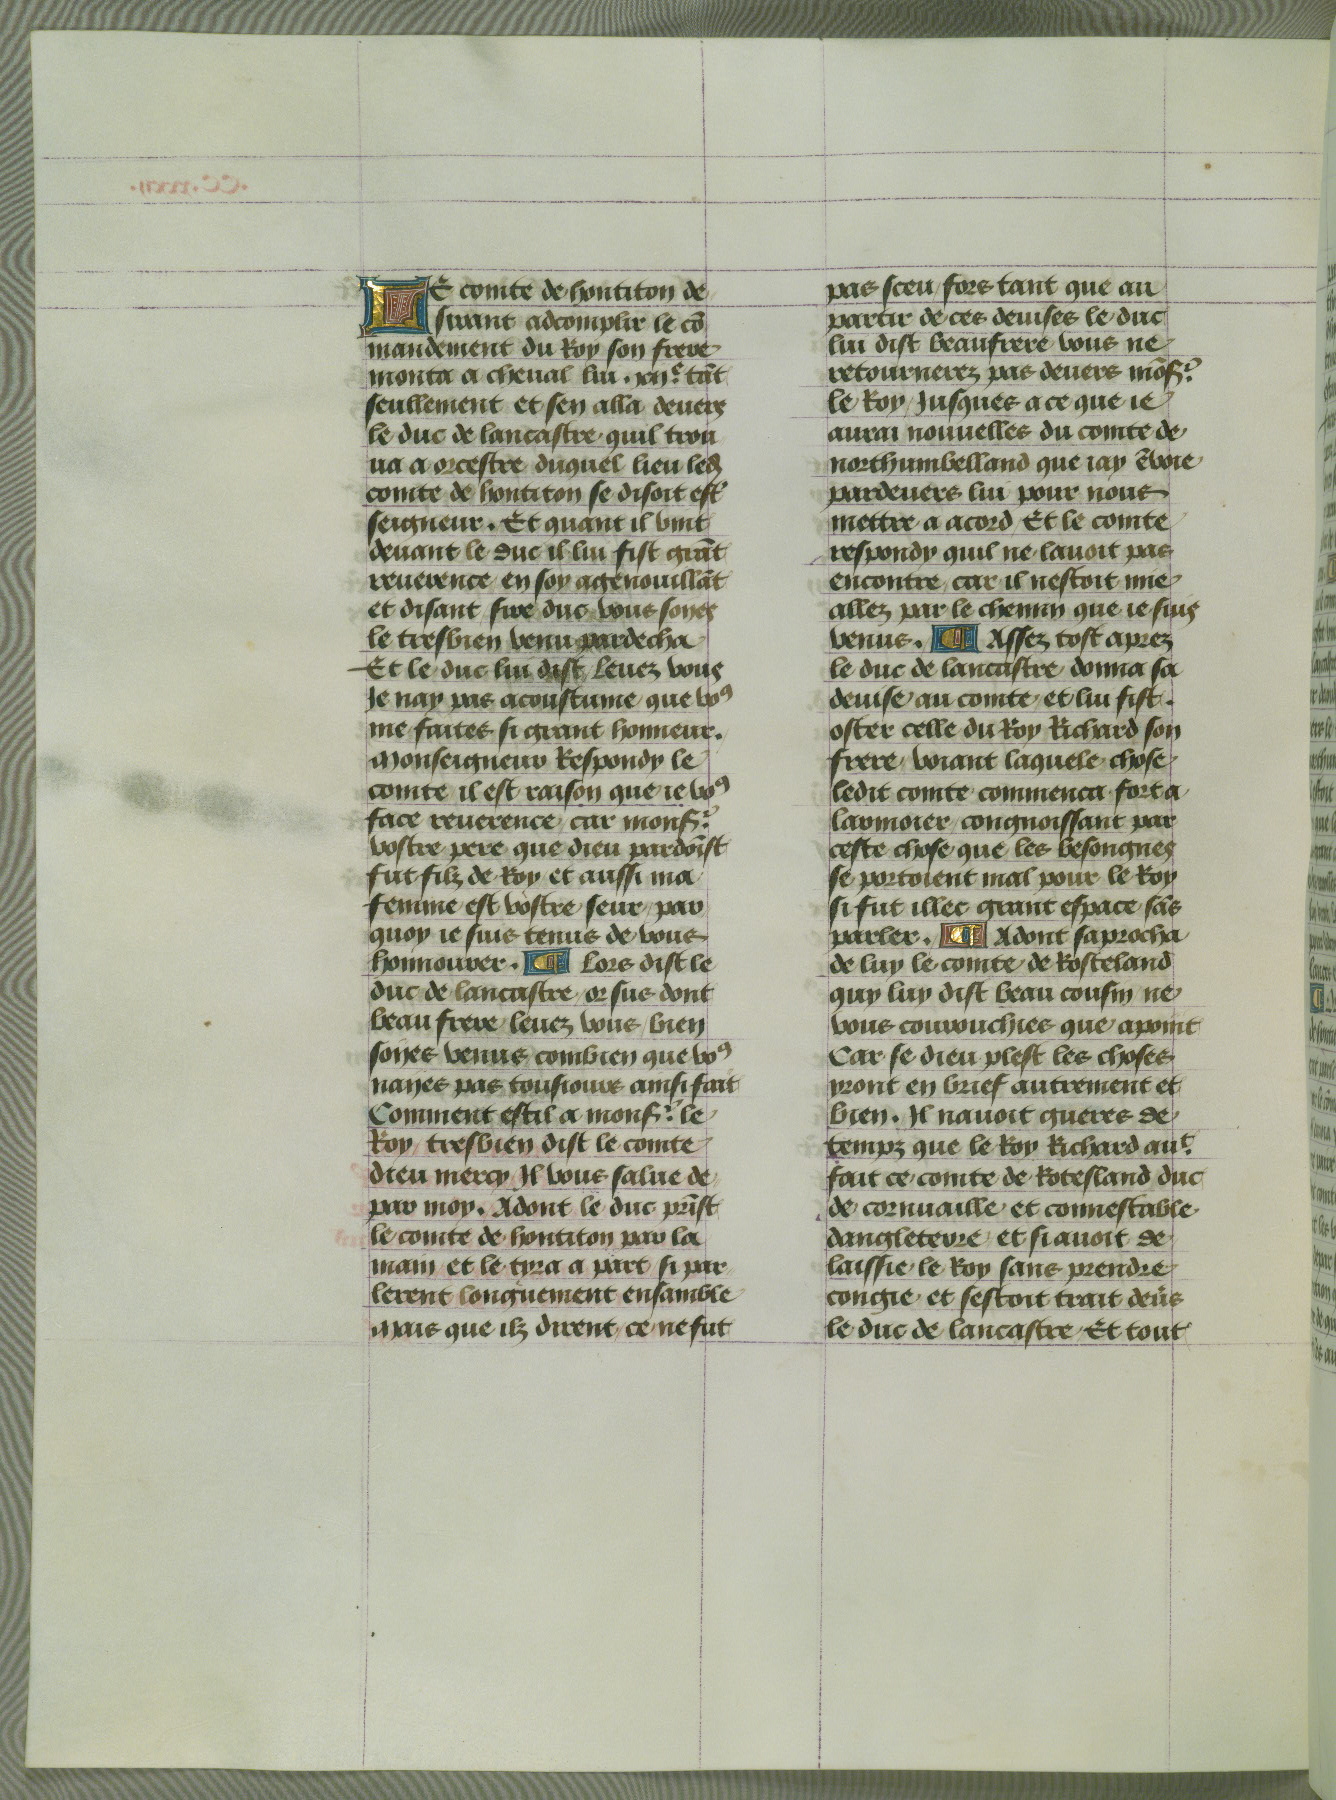 LE comte de hontiton de
sirant adcomplir le cō
mandement du Roy son frere
monta a cheval lui . xii.ͤ tāt
seullement et sen alla devers
le duc de lancastre quil trou
va a orcestre duquel lieu led
comte de hontiton se disoit estͬ
seigneur . Et quant il vint
devant le duc il lui fist grāt
reverence en soy agenouillāt
et disant sire duc vous soyes
le tresbien venu pardecha
Et le duc lui dist levez vous
Je nay pas acoustume que voꝰ
me faites si grant honneur .
Monseigneur Respondy le
comte il est raison que ie voꝰ
face reverence car monsͬ.
vostre pere que dieu pardoīst
fut filz de Roy et aussi ma
femme est vostre seur par
quoy ie suis tenus de vous
honnourer . ¶ Lors dist le
duc de lancastre or sus dont
beau frere levez vous / bien
soyes venus combien que voꝰ
nayes pas tousiours ainsi fait
Comment estil a monsͬ. le
Roy / tresbien dist le comte
dieu mercy Il vous salue de
par moy . Adont le duc prīst
le comte de hontiton par la
main et le tyra a part si par
lerent longuement ensamble
Mais que ilz dirent ce ne fut
pas sceu fors tant que au
partir de ces devises le duc
lui dist beaufrere vous ne
retournerez pas devers mōsͬ.
le Roy Jusques a ce que ie
aurai nouvelles du comte de
northumbelland que iay ēvoie
pardevers lui pour nous
mettre a acord Et le comte
respondy quil ne lavoit pas
encontre car il nestoit mie
allez par le chemin que ie suis
venus . ¶ Assez tost aprez
le duc de lancastre donna sa
devise au comte et lui fist .
oster celle du Roy Richard son
frere voiant laquele chose
ledit comte commenca fort a
larmoier congnoissant par
ceste chose que les besongnes
se portoient mal pour le Roy
si fut illec grant espace sās
parler . ¶ Adont saprocha
de luy le comte de Rosteland
quy luy dist beau cousin ne
vous courouchies que apoint
Car se dieu plest les choses
yront en brief autrement et
bien . Il navoit gueres de
tempz que le Roy Richard avͭ.
fait ce comte de Rotesland duc
de cornuaille et connestable
dangleterre et si avoit de
laissie le Roy sans prendre
congie et sestoit trait devs̄
le duc de lancastre Et tout